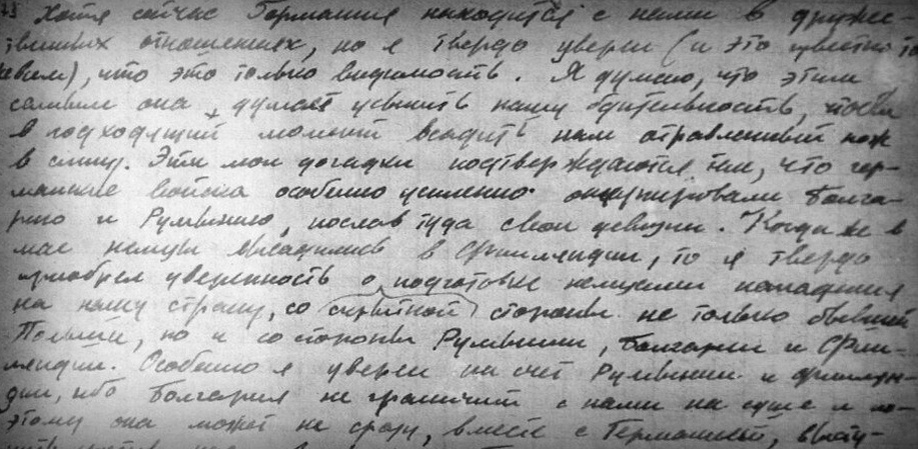 Хотя сейчас Германия находится с нами в друже-
твенных отношениях, но я твердо уверен (и это известно
всем), что это только видимость. Я думаю, что этим
самым она думает усыпить нашу бдительность, чтобы
в подходящий момент всадить нам отравленный нож
в спину. Эти мои догадки подтверждаются тем, что гер-
манские войска особенно усиленно оккупировали Болга-
рию и Румынию, послав туда свои дивизии. Когда же в
мае немцы высадились в Финляндии, то я твердо
приобрел уверенность о подготовке немцами нападения
на нашу страну, со стороны не только бывшей
Польши, но и со стороны Румынии, Болгарии и Фин-
ляндии. Особенно я уверен на счет Румынии и Финлян-
дии, ибо Болгария не граничит с нами на суше и по-
этому она может не сразу, вместе с Германией, высту-